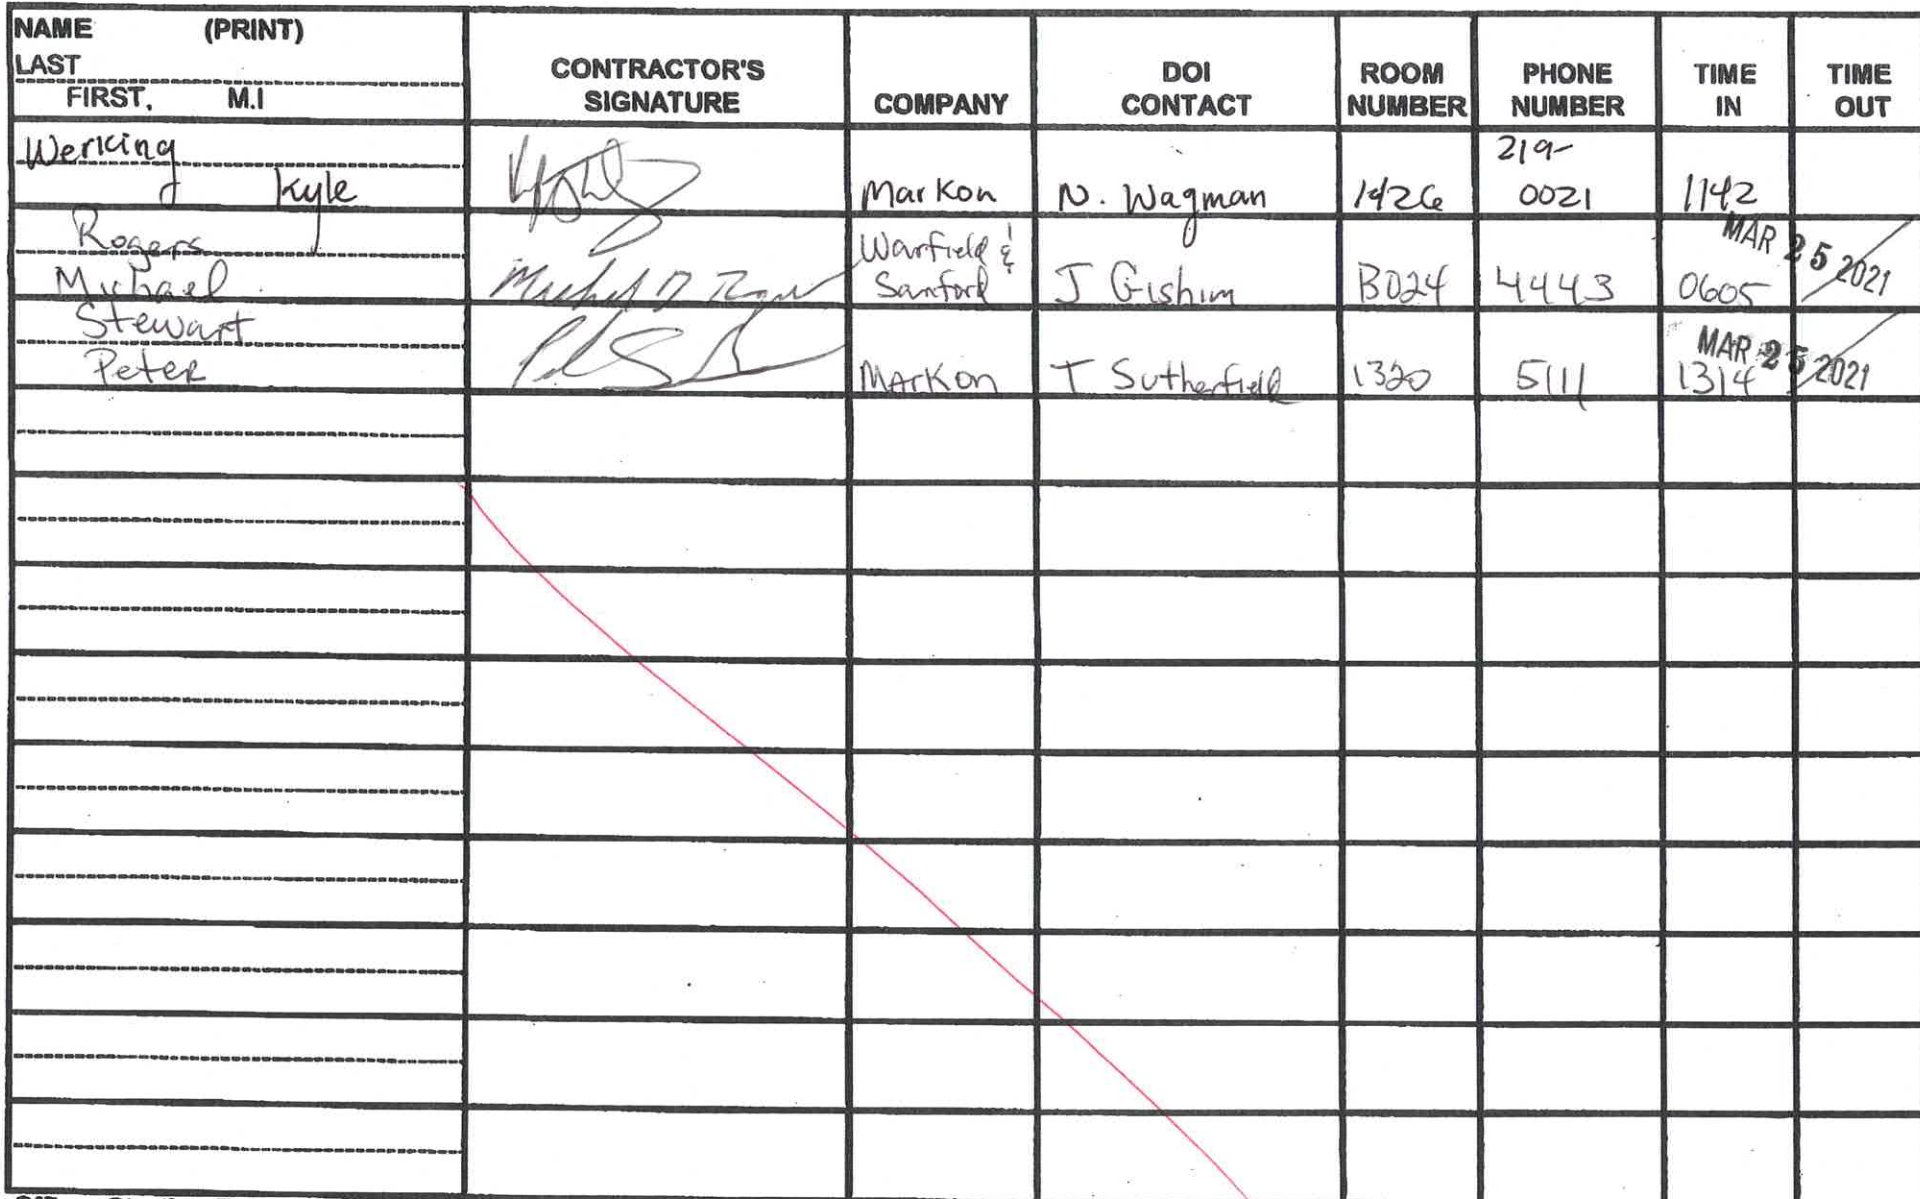 NAME (PRINT)
LAST
FIRST, M.I
CONTRACTOR'S
SIGNATURE
COMPANY
DOI
CONTACT
ROOM
NUMBER
PHONE
NUMBER
TIME
IN
TIME
OUT
Werking
Kyle
Markon
N. Wagman
1426
219-
0021
1142
Rogers
Michael
Warfield &
Sanford
J
B024
4443
0605
MAR 25 2021
Stewart
Peter
Markon
T Sutherfield
1320
5111
1314
MAR 25 2021